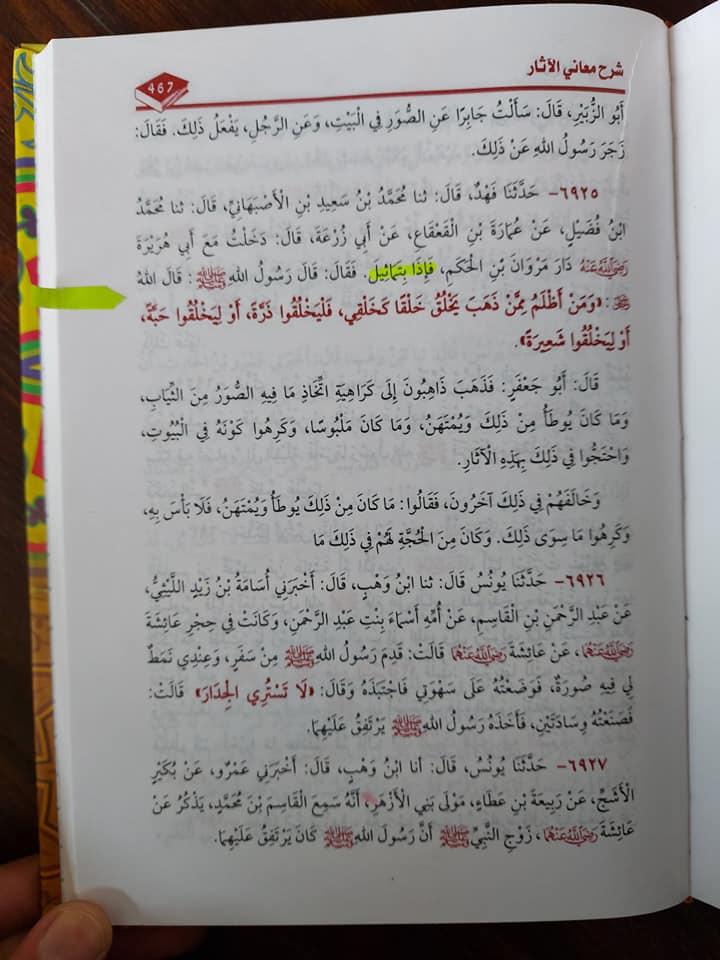 شرح معاني الآثار
467
أَبُو الزُّبَيْرِ، قَالَ: سَأَلْتُ جَابِرًا عَنِ الصُّوَرِ فِي الْبَيْتِ، وَعَنِ الرَّجُلِ، يَفْعَلُ ذَلِكَ. فَقَالَ:
زَجَرَ رَسُولُ اللهِ عَنْ ذَلِكَ.
٦٩٢٥- حَدَّثَنَا فَهْدٌ، قَالَ: ثنا مُحَمَّدُ بْنُ سَعِيدِ بْنِ الْأَصْبَهَانِيِّ، قَالَ: ثنا مُحَمَّدُ
ابْنُ فُضَيْلٍ، عَنْ عُمَارَةَ بْنِ الْقَعْقَاعِ، عَنْ أَبِي زُرْعَةَ، قَالَ: دَخَلْتُ مَعَ أَبِي هُرَيْرَةَ
رَضِيَ اللهُ عَنْهُ دَارَ مَرْوَانَ بْنِ الْحَكَمِ، فَإِذَا بِتَمَاثِيلَ. فَقَالَ: قَالَ رَسُولُ اللهِ ﷺ: قَالَ اللهُ
: «وَمَنْ أَظْلَمُ مِمَّنْ ذَهَبَ يَخْلُقُ خَلْقًا كَخَلْقِي، فَلْيَخْلُقُوا ذَرَّةً، أَوْ لِيَخْلُقُوا حَبَّةً،
أَوْ لِيَخْلُقُوا شَعِيرَةً».
قَالَ: أَبُو جَعْفَرٍ: فَذَهَبَ ذَاهِبُونَ إِلَى كَرَاهِيَةِ اتِّخَاذِ مَا فِيهِ الصُّوَرُ مِنَ الثِّيَابِ،
وَمَا كَانَ يُوطَأُ مِنْ ذَلِكَ وَيُمْتَهَنُ، وَمَا كَانَ مَلْبُوسًا، وَكَرِهُوا كَوْنَهُ فِي الْبُيُوتِ،
وَاحْتَجُّوا فِي ذَلِكَ بِهَذِهِ الْآثَارِ.
وَخَالَفَهُمْ فِي ذَلِكَ آخَرُونَ، فَقَالُوا: مَا كَانَ مِنْ ذَلِكَ يُوطَأُ وَيُمْتَهَنُ، فَلَا بَأْسَ بِهِ،
وَكَرِهُوا مَا سِوَى ذَلِكَ. وَكَانَ مِنَ الْحُجَّةِ لَهُمْ فِي ذَلِكَ مَا
٦٩٢٦- حَدَّثَنَا يُونُسُ قَالَ: ثنا ابْنُ وَهْبٍ، قَالَ: أَخْبَرَنِي أُسَامَةُ بْنُ زَيْدٍ اللَّيْثِيُّ،
عَنْ عَبْدِ الرَّحْمَنِ بْنِ الْقَاسِمِ، عَنْ أُمِّهِ أَسْمَاءَ بِنْتِ عَبْدِ الرَّحْمَنِ، وَكَانَتْ فِي حِجْرِ عَائِشَةَ
رَضِيَ اللهُ عَنْهَمَا، عَنْ عَائِشَةَ رَضِيَ اللهُ عَنْهُمَا قَالَتْ: قَدِمَ رَسُولُ اللهِ ﷺ مِنْ سَفَرٍ، وَعِنْدِي نَمَطٌ
لِي فِيهِ صُورَةٌ، فَوَضَعْتُهُ عَلَى سَهْوَتِي فَاجْتَبَذَهُ وَقَالَ: «لَا تَسْتُرِي الْجِدَارَ» قَالَتْ:
فَصَنَعْتُهُ وِسَادَتَيْنِ، فَأَخَذَهُ رَسُولُ اللهِ ﷺ يَرْتَفِقُ عَلَيْهِمَا.
٦٩٢٧- حَدَّثَنَا يُونُسُ، قَالَ: أنا ابْنُ وَهْبٍ، قَالَ: أَخْبَرَنِي عَمْرٌو، عَنْ بُكَيْرِ
الْأَشَجِّ، عَنْ رَبِيعَةَ بْنِ عَطَاءٍ، مَوْلَى بَنِي الْأَزْهَرِ، أَنَّهُ سَمِعَ الْقَاسِمَ بْنَ مُحَمَّدٍ، يَذْكُرُ عَنْ
عَائِشَةَ رَضِيَ اللهُ عَنْهُمَا، زَوْجِ النَّبِيِّ ﷺ أَنَّ رَسُولَ اللهِ ﷺ كَانَ يَرْتَفِقُ عَلَيْهِمَا.